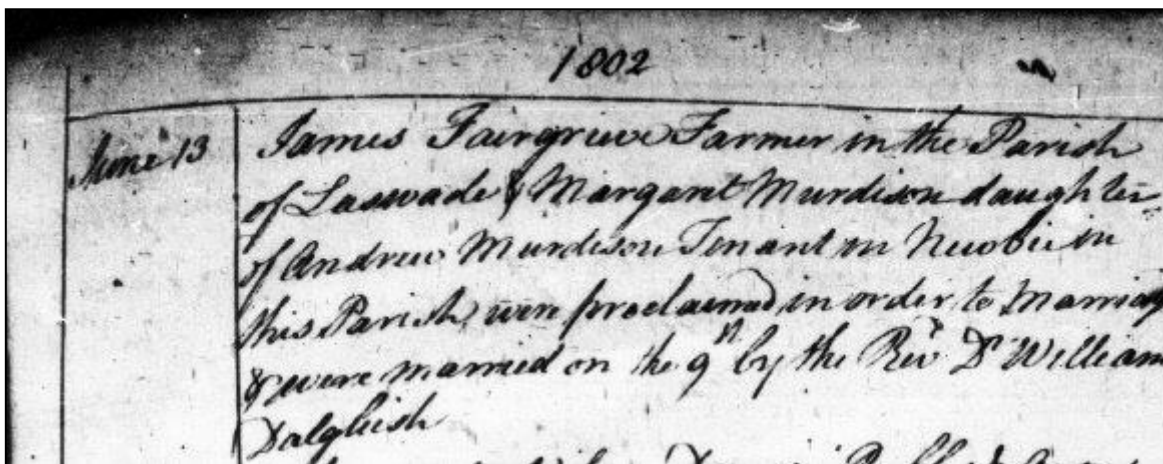 1802
June 13
James Fairgrieve Farmer in the Parish
of Laswade & Margaret Murdison daughter
of Andrew Murdison Tenant in Newbie in
this Parish, were proclaimed in order to Marriage
& were married on the 9th by the Revd Dr William
Dalgliesh